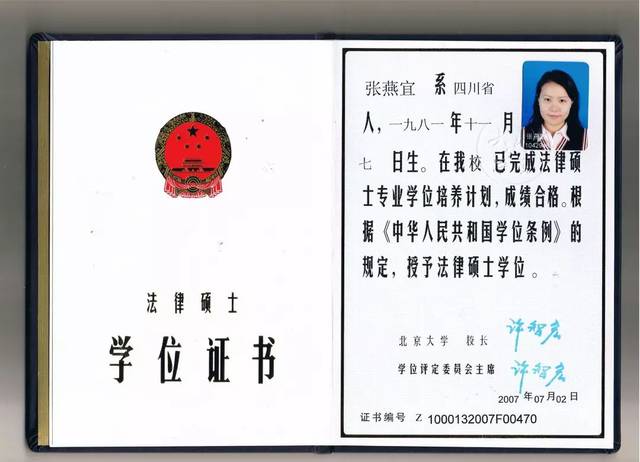 法律硕士
学位证书
张燕宜 系 四川省
人，一九八一年十一月
七 日生。在我校已完成法律硕
士专业学位培养计划，成绩合格。根
据《中华人民共和国学位条例》的
规定，授予法律硕士学位。
北京大学 校长 许智宏
学位评定委员会主席 许智宏
2007 年07月02日
证书编号 Z 1000132007F00470